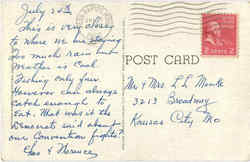 July 20th
This is very close
to where we are staying
too much rain but
Weather is Cool
Fishing only fair
However can always
catch enough to
Eat. What was it the
Democrats said about
our Convention fights?
Geo & Florence
POST CARD
2 CENTS 2
Mr & Mrs L L Mantle
3213 Broadway
Kansas City Mo